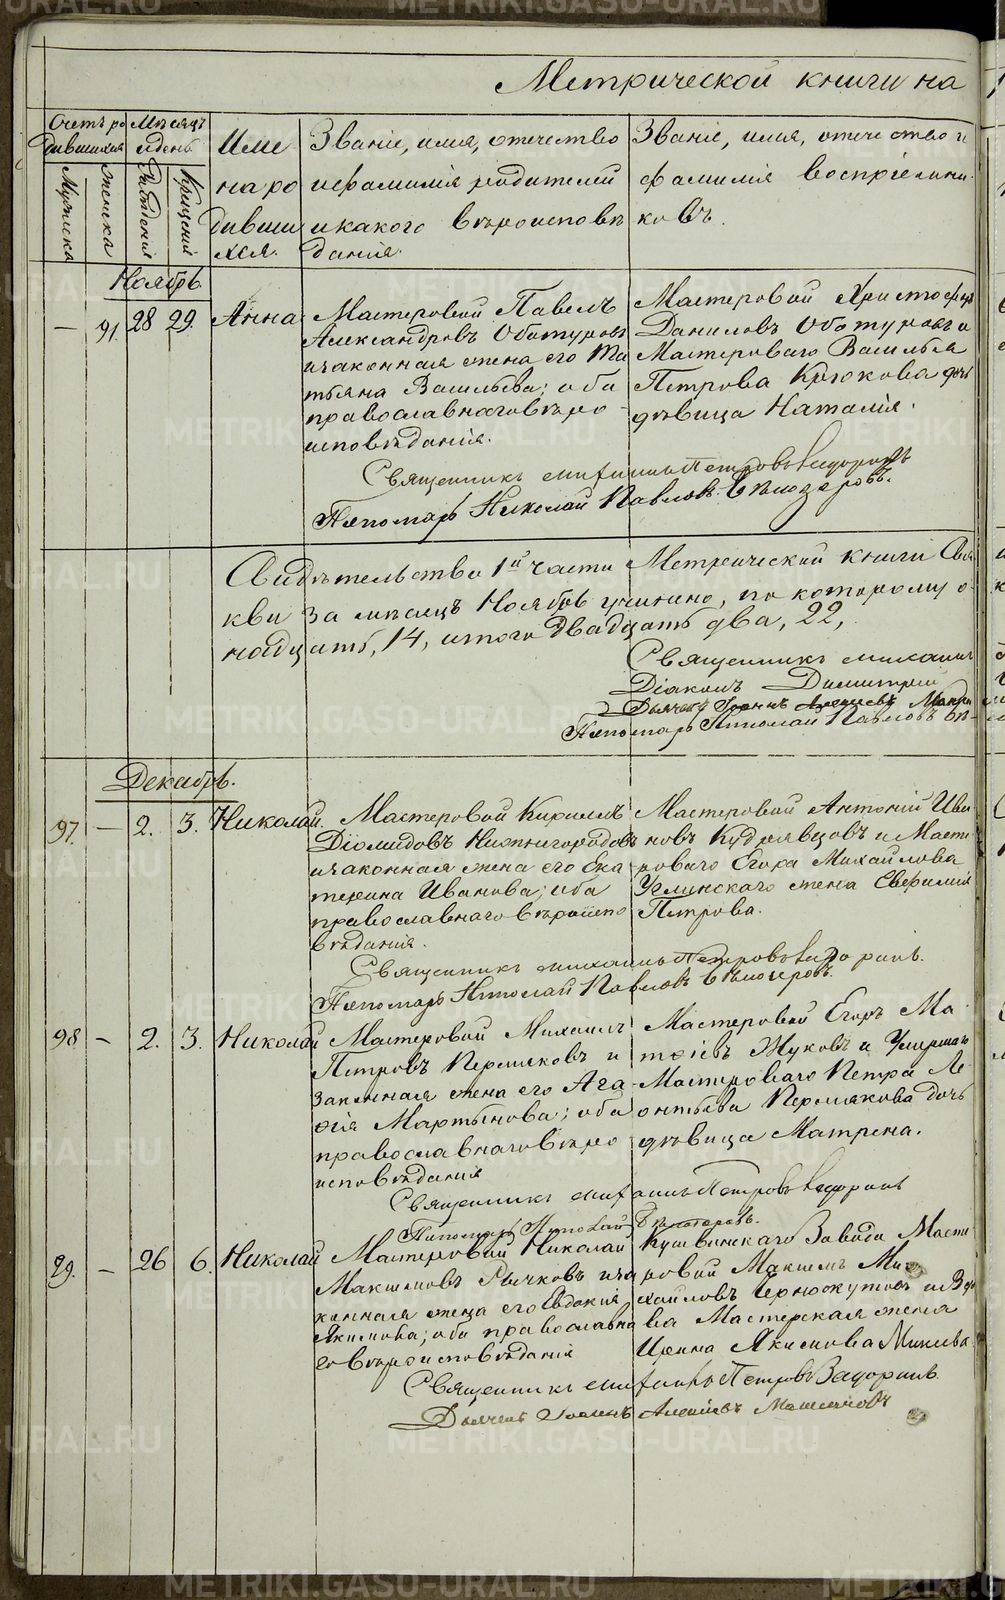 Метрической книги на
Счетъ ро
дившихся
Мѣсяцъ
и день
Мужеска
Женска
Рожденія
Крещенія
Име
на ро
дивши
хся.
Званіе, имя, отечество
и фамилія родителей
и какого вѣроисповѣ
данія.
Званіе, имя, отечество и
фамилія воспріемни-
ковъ.
Ноябрь
— 91. 28 29. Анна
Мастеровой Павелъ
Александровъ Обатуровъ
и законная жена его Та
тьяна Васильева; оба
православнаго вѣро
исповѣданія.
Мастеровой Христофоръ
Даниловъ Обатуровъ и
Мастероваго Василья
Петрова Крюкова дочь
дѣвица Наталія.
Священникъ Михаилъ Петровъ Задоринъ
Пономарь Николай Павловъ Бѣлозеровъ.
Свидѣтельство 1й части Метрической книги
кви за мѣсяцъ Ноябрь учинено, по которому о-
надцать, 14, итого двадцать два, 22,
Священникъ Михаилъ
Діаконъ Димитрій
Дьячекъ Іоаннъ Алексіевъ
Пономарь Николай Павловъ Бѣ-
Декабрь.
97. — 2. 3. Николай.
Мастеровой Кириллъ
Діомидовъ Нижнегородовъ
и законная жена его Ека
терина Иванова; оба
православнаго вѣроиспо
вѣданія.
Мастеровой Антоній Ива
новъ Кудрявцовъ и Масте
роваго Егора Михайлова
Углинскаго жена Евфимія
Петрова.
Священникъ Михаилъ Петровъ Задоринъ.
Пономарь Николай Павловъ Бѣлозеровъ.
98 — 2. 3. Николай
Мастеровой Михаилъ
Петровъ Пермяковъ и
законная жена его Ага
фія Мартынова; оба
православнаго вѣро
исповѣданія
Мастеровой Егоръ Ма-
тфіевъ Жуковъ и Умершаго
Мастероваго Петра Ле-
онтьева Пермякова дочь
дѣвица Матрена.
Священникъ Михаилъ Петровъ Задоринъ
Пономарь Николай Бѣлозеровъ.
99. — 26 6. Николай
Мастеровой Николай
Максимовъ Рычковъ и за
конная жена его Евдокія
Якимова; оба православна
го вѣроисповѣданія
Кушвинскаго Завода Масте
ровой Максимъ Ми-
хайловъ
ва Мастерская жена
Ирина Якимова Минеева
Священникъ Михаилъ Петровъ Задоринъ.
Дьячекъ Іоаннъ Алексіевъ
METRIKI.GASO-URAL.RU